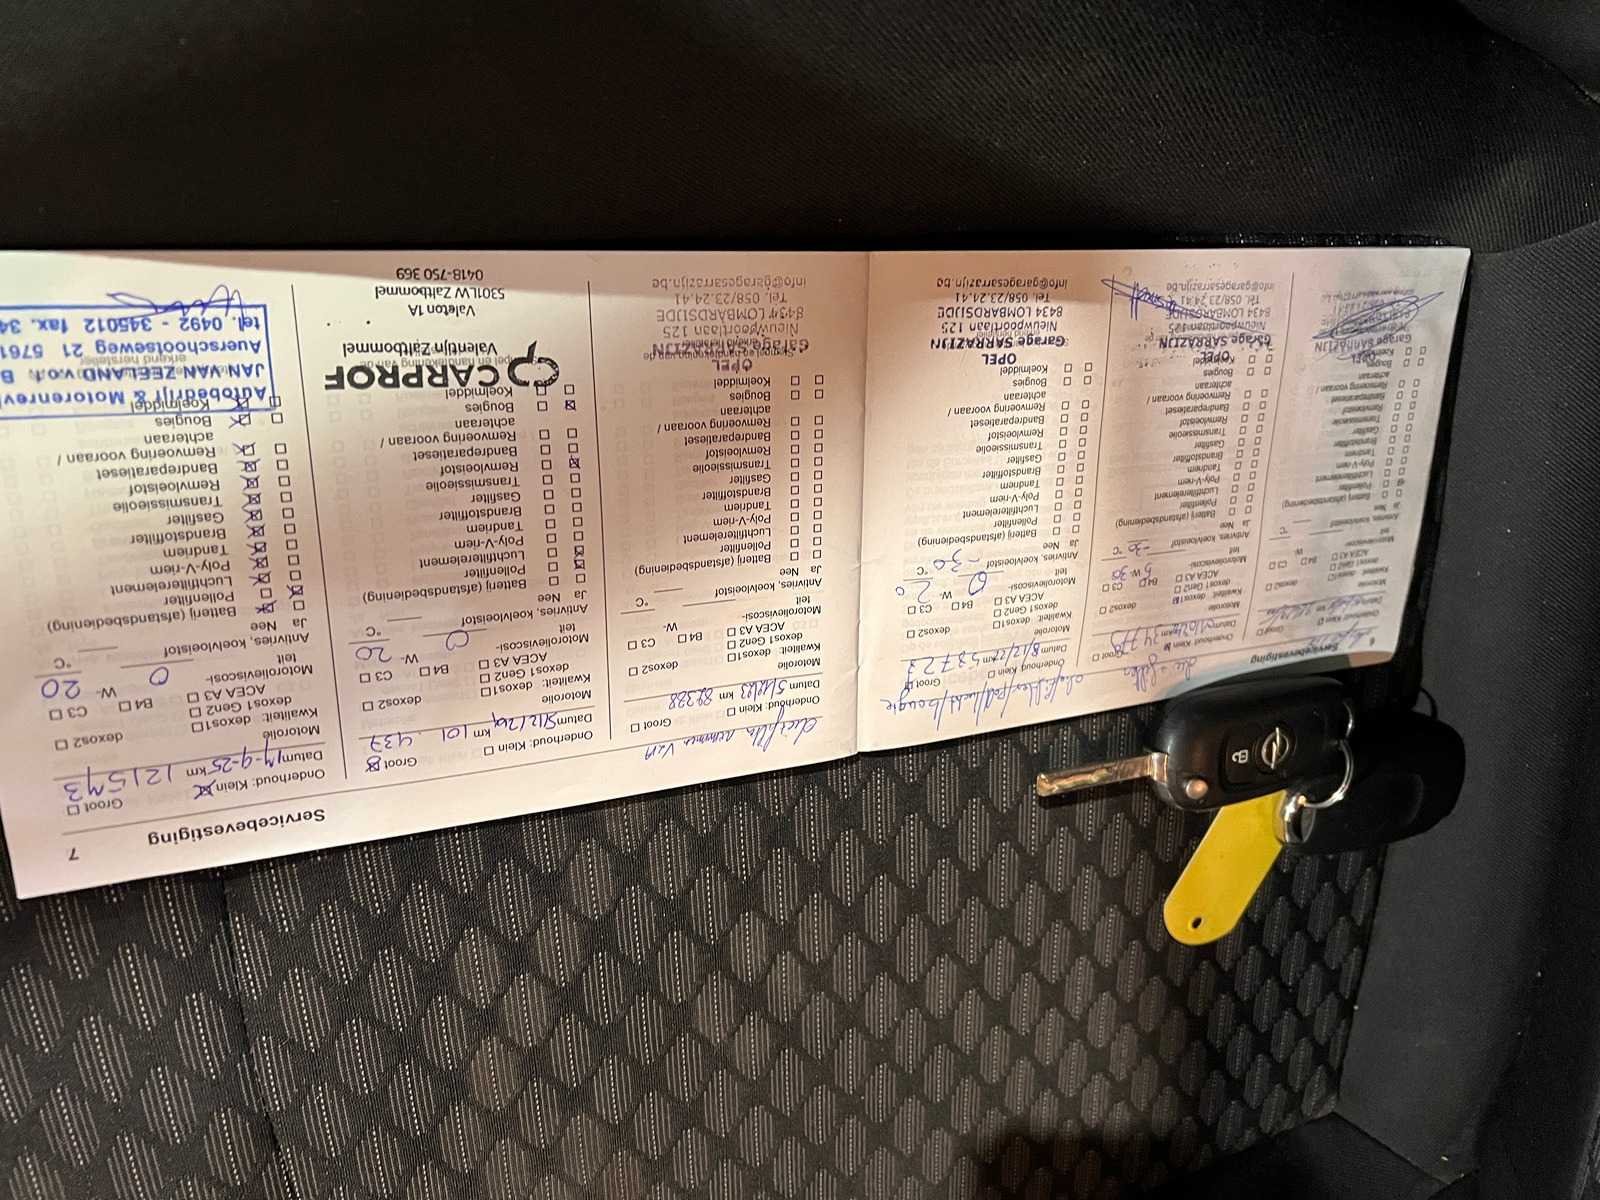 6
Servicebevestiging
Onderhoud: Klein
Groot
Motorolie
Kwaliteit: dexos1
dexos2
dexos1 Gen2
ACEA A3
B4
C3
W-
teit
°C
Antivries, koelvloeistof
Ja
Nee
Batterij (afstandsbediening)
Pollenfilter
Luchtfilterelement
Poly-V-riem
Tandriem
Brandstoffilter
Gasfilter
Transmissieolie
Remvloeistof
Bandreparatieset
Remvoering vooraan /
achteraan
Bougies
Koelmiddel
OPEL
Onderhoud: Klein
Groot
Motorolie
Kwaliteit: dexos1
dexos2
dexos1 Gen2
ACEA A3
B4
C3
Motorolieviscosi-
5 W- 30
teit
-30 °C
Antivries, koelvloeistof
Ja
Nee
Batterij (afstandsbediening)
Pollenfilter
Luchtfilterelement
Poly-V-riem
Tandriem
Brandstoffilter
Gasfilter
Transmissieolie
Remvloeistof
Bandreparatieset
Remvoering vooraan /
achteraan
Bougies
Koelmiddel
OPEL
Garage SARRAZIJN
Nieuwpoortlaan 125
8434 LOMBARDSIJDE
Tel. 058/23.24.41
info@garagesarrazijn.be
Onderhoud: Klein
Groot
km 53723
Motorolie
Kwaliteit: dexos1
dexos2
dexos1 Gen2
ACEA A3
B4
C3
Motorolieviscosi-
0 W- 20
teit
-30 °C
Antivries, koelvloeistof
Ja
Nee
Batterij (afstandsbediening)
Pollenfilter
Luchtfilterelement
Poly-V-riem
Tandriem
Brandstoffilter
Gasfilter
Transmissieolie
Remvloeistof
Bandreparatieset
Remvoering vooraan /
achteraan
Bougies
Koelmiddel
OPEL
Garage SARRAZIJN
Nieuwpoortlaan 125
8434 LOMBARDSIJDE
Tel. 058/23.24.41
info@garagesarrazijn.be
Onderhoud: Klein
Groot
Datum 5/12/23 km 82328
Motorolie
Kwaliteit: dexos1
dexos2
dexos1 Gen2
ACEA A3
B4
C3
Motorolieviscosi-
W-
teit
°C
Antivries, koelvloeistof
Ja
Nee
Batterij (afstandsbediening)
Pollenfilter
Luchtfilterelement
Poly-V-riem
Tandriem
Brandstoffilter
Gasfilter
Transmissieolie
Remvloeistof
Bandreparatieset
Remvoering vooraan /
achteraan
Bougies
Koelmiddel
OPEL
Garage SARRAZIJN
Nieuwpoortlaan 125
8434 LOMBARDSIJDE
Tel. 058/23.24.41
info@garagesarrazijn.be
Onderhoud: Klein
Groot
Datum 5/12/24 km 101.437
Motorolie
Kwaliteit: dexos1
dexos2
dexos1 Gen2
ACEA A3
B4
C3
Motorolieviscosi-
0 W- 20
teit
°C
Antivries, koelvloeistof
Ja
Nee
Batterij (afstandsbediening)
Pollenfilter
Luchtfilterelement
Poly-V-riem
Tandriem
Brandstoffilter
Gasfilter
Transmissieolie
Remvloeistof
Bandreparatieset
Remvoering vooraan /
achteraan
Bougies
Koelmiddel
CARPROF
Valentijn Zaltbommel
Valeton 1A
5301LW Zaltbommel
0418-750 369
7
Servicebevestiging
Onderhoud: Klein
Groot
km 121543
Motorolie
Kwaliteit: dexos1
dexos2
dexos1 Gen2
ACEA A3
B4
C3
Motorolieviscosi-
0 W- 20
teit
°C
Antivries, koelvloeistof
Ja
Nee
Batterij (afstandsbediening)
Pollenfilter
Luchtfilterelement
Poly-V-riem
Tandriem
Brandstoffilter
Gasfilter
Transmissieolie
Remvloeistof
Bandreparatieset
Remvoering vooraan /
achteraan
Bougies
Koelmiddel
Autobedrijf & Motorenrev
JAN VAN ZEELAND v.o.f. B
Auerschootseweg 21 5761
tel. 0492 - 345012 fax. 34